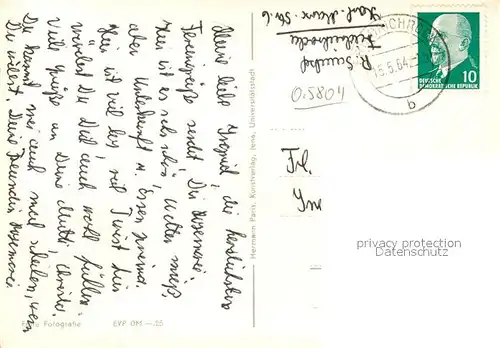 Meine liebe Ingrid, die herzlichsten
Feriengrüße sendet Dir Rosemarei.
Hier ist es sehr schön, Wetter mies,
aber Unterkunft u. Essen prima.
Hier ist viel los, viel Twist hier
würdest Du Dich auch wohl fühlen.
Viele Grüße an Deine Mutti, schreibe
Du kannst mei auch mal schreiben, wenn
Du willst. Deine Freundin Rosemarei
Echt Fotografie EVP DM —.25
Hermann Paris, Kunstverlag, Jena, Universitätsstadt
R.
Friedrichroda
Karl-Marx-Str. 6
0.5804
15.5.64
b
DEUTSCHE
DEMOKRATISCHE REPUBLIK
10
Frl.
privacy protection
Datenschutz